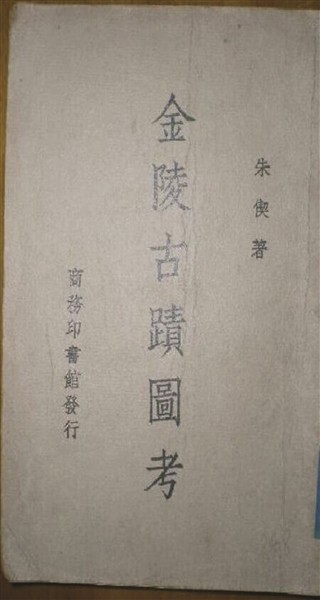 朱偰著
金陵古蹟圖考
商務印書館發行